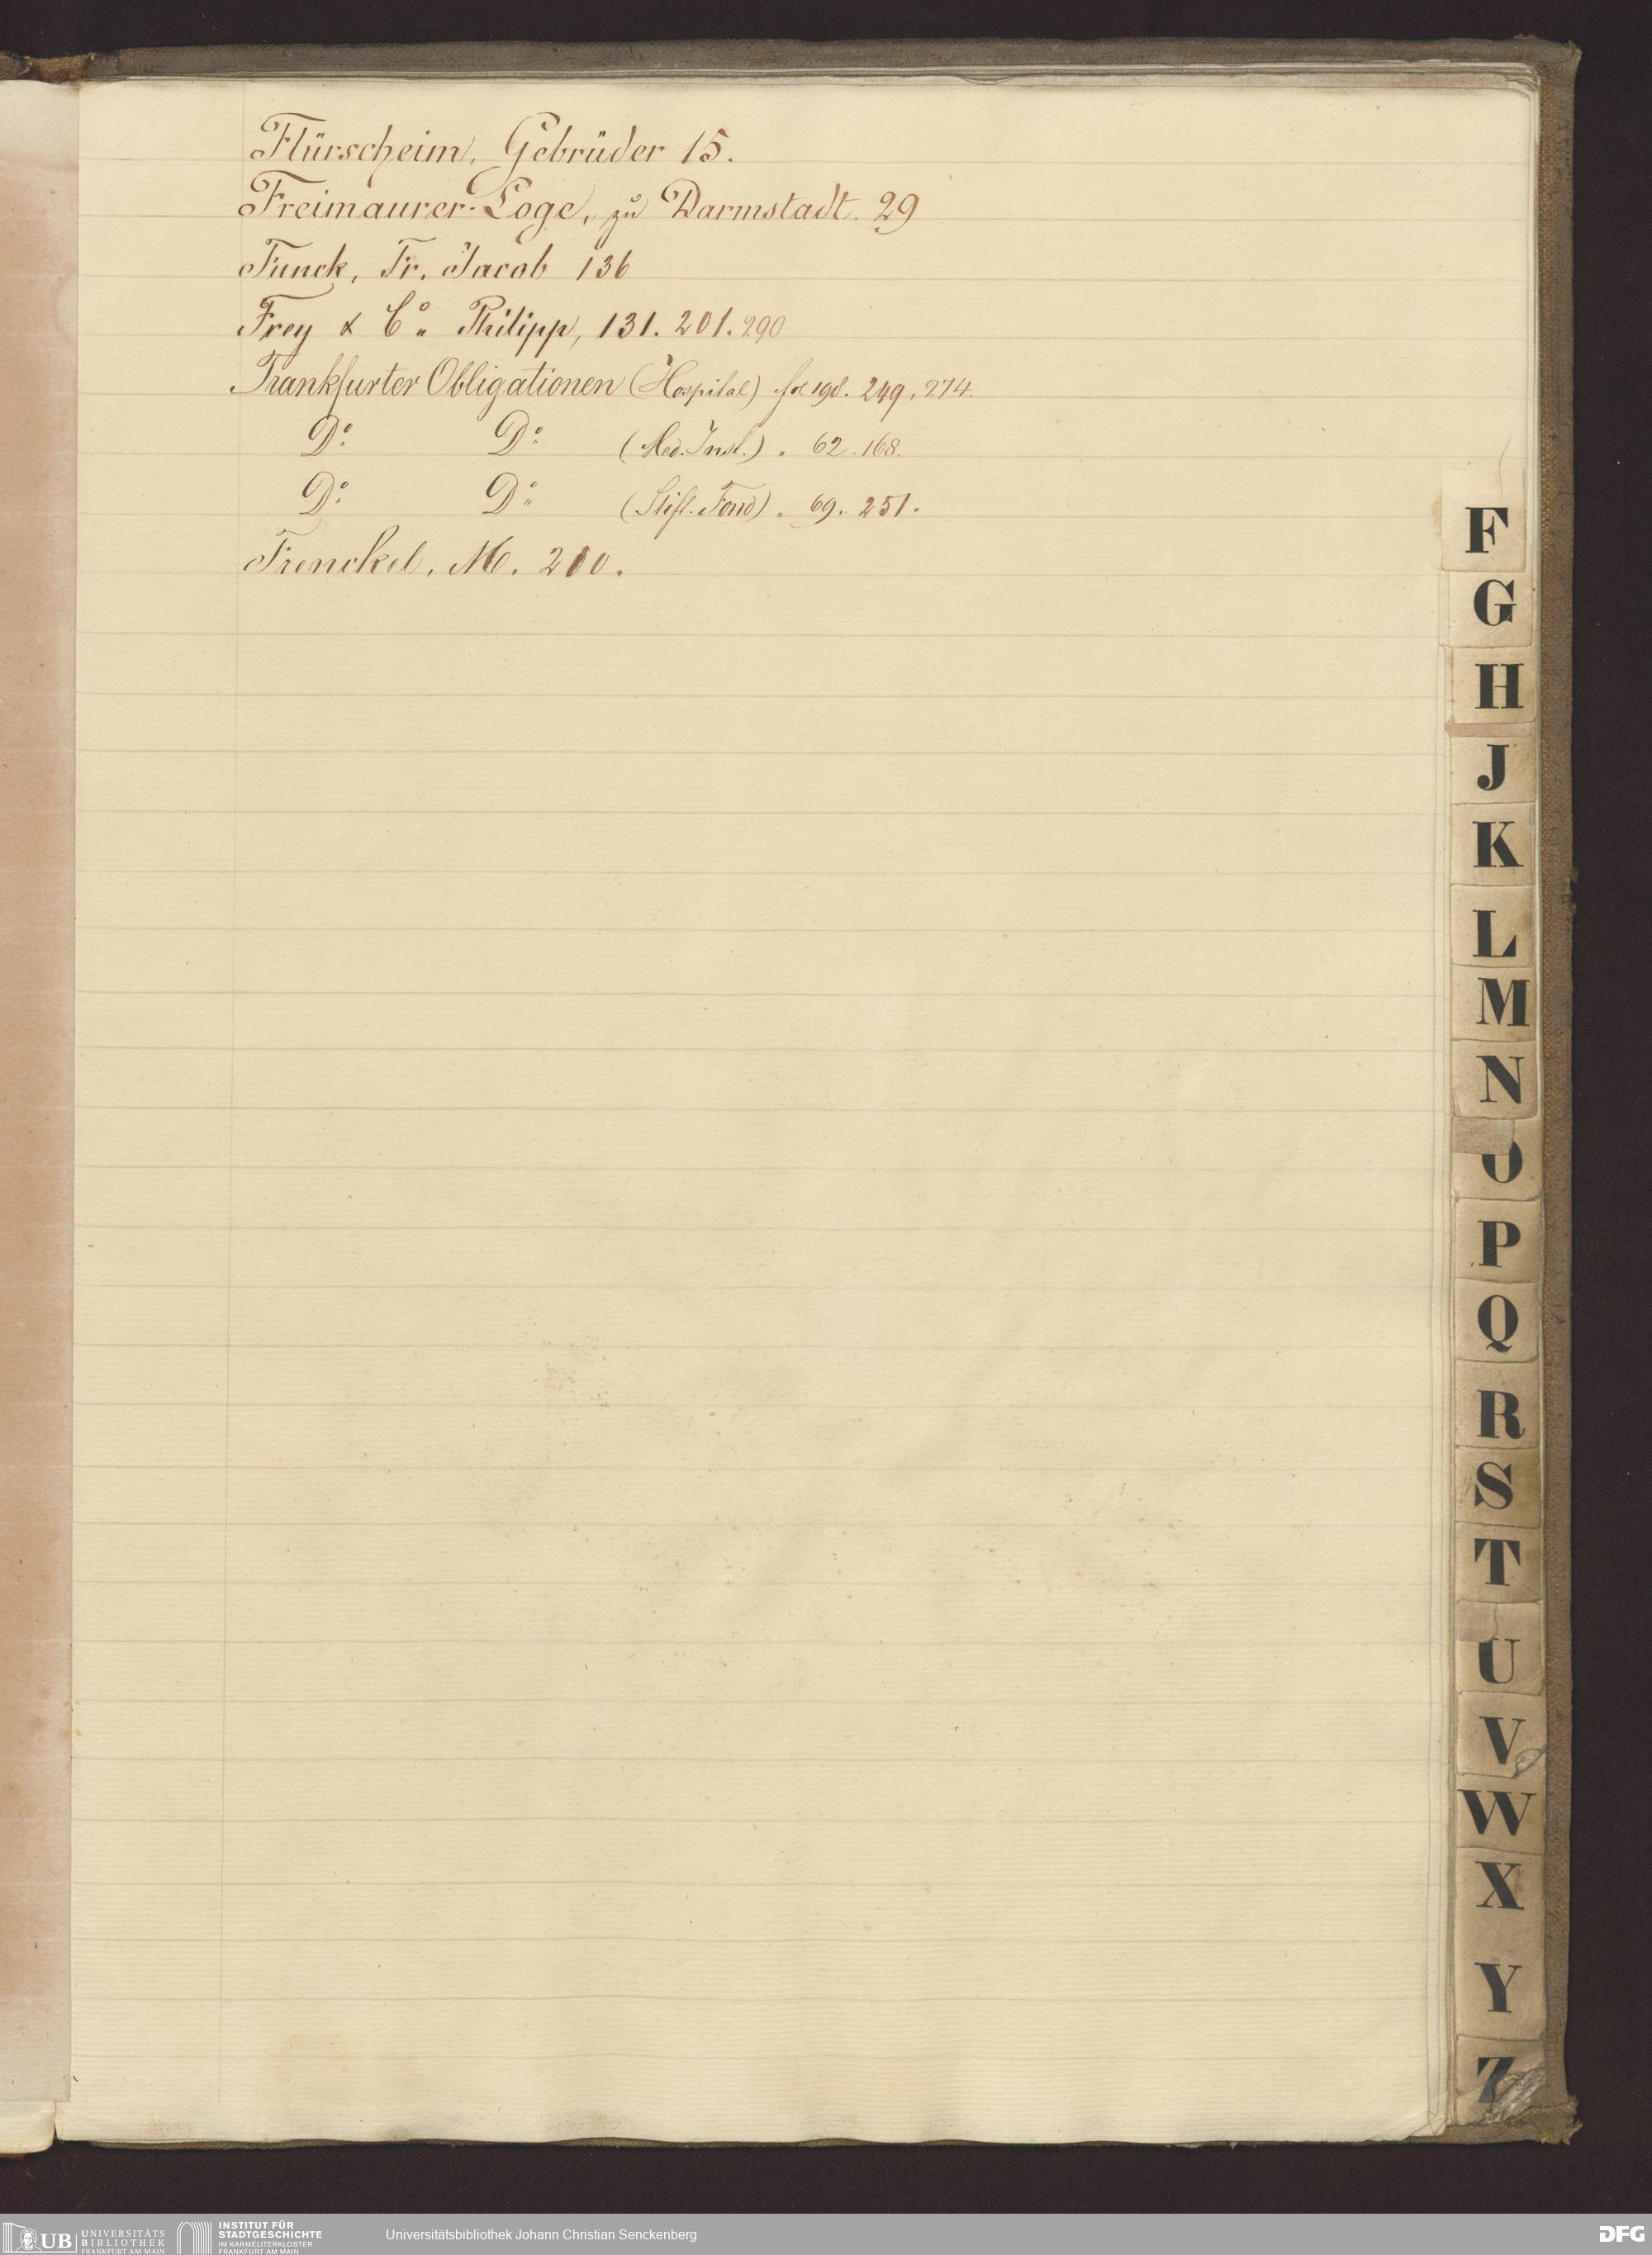 Flürscheim, Gebrüder 15.
Freimaurer-Loge, zu Darmstadt. 29
Funck, Fr. Jacob 136
Frey & Co. Philipp, 131. 201. 290
Frankfurter Obligationen (Hospital) fol 198. 249. 274.
Do. Do. (Med. Inst.) " 62. 168.
Do. Do. (Stift. Fond) " 69. 251.
Frenckel, M. 210.
F
G
H
J
K
L
M
N
O
P
Q
R
S
T
U
V
W
X
Y
Z
UB UNIVERSITÄTS BIBLIOTHEK FRANKFURT AM MAIN
INSTITUT FÜR STADTGESCHICHTE IM KARMELITERKLOSTER FRANKFURT AM MAIN
Universitätsbibliothek Johann Christian Senckenberg
DFG